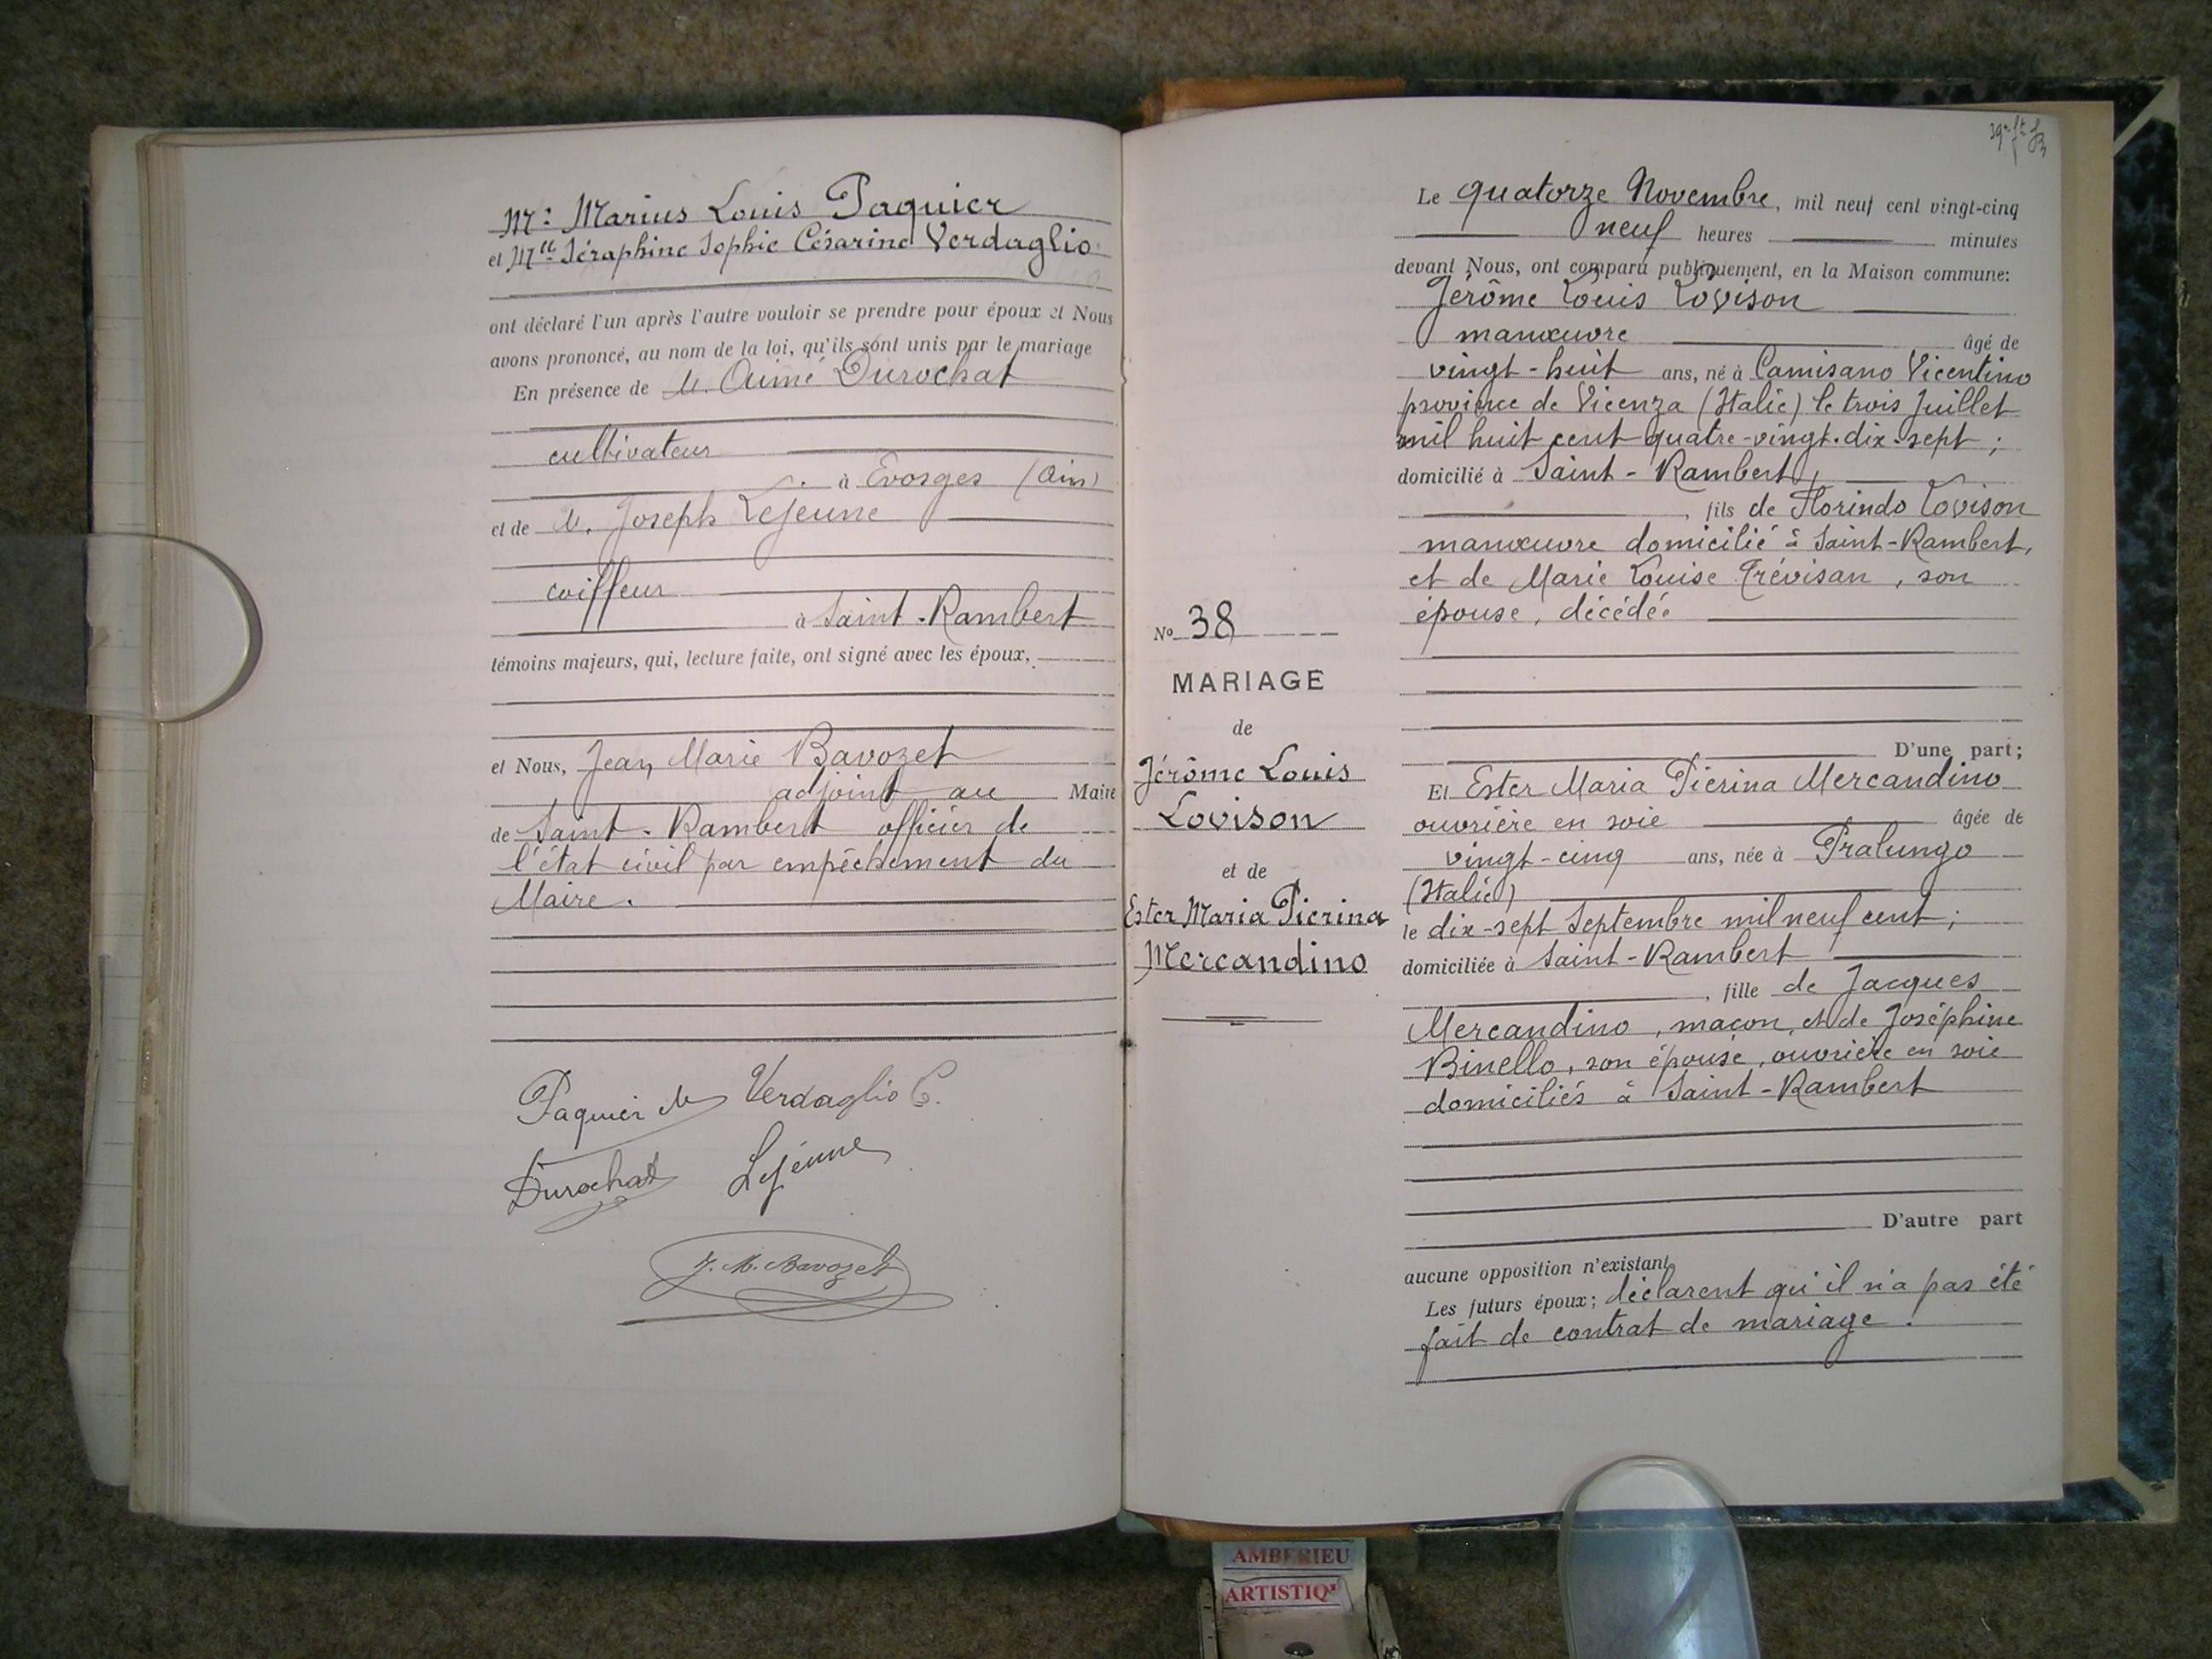 Mr. Marius Louis Paquier
et Mlle Séraphine Sophie Césarine Verdaglio
ont déclaré l'un après l'autre vouloir se prendre pour époux et Nous
avons prononcé, au nom de la loi, qu'ils sont unis par le mariage
En présence de M. Aimé Durochat
cultivateur
à Evosges (Ain)
et de M. Joseph Lejeune
coiffeur
à Saint-Rambert
témoins majeurs, qui, lecture faite, ont signé avec les époux,
et Nous, Jean Marie Bavozet
adjoint au Maire
de Saint-Rambert officier de
l'état civil par empêchement du
Maire.
Paquier Verdaglio C.
Durochat Lejeune
J. M. Bavozet
No 38
MARIAGE
de
Jérôme Louis
Lovison
et de
Ester Maria Pierina
Mercandino
Le quatorze Novembre, mil neuf cent vingt-cinq
neuf heures minutes
devant Nous, ont comparu publiquement, en la Maison commune:
Jérôme Louis Lovison
manœuvre âgé de
vingt-huit ans, né à Camisano Vicentino
province de Vicenza (Italie) le trois Juillet
mil huit cent quatre-vingt-dix-sept ;
domicilié à Saint-Rambert,
, fils de Florindo Lovison
manœuvre domicilié à Saint-Rambert,
et de Marie Louise Trévisan, son
épouse, décédée
D'une part;
Et Ester Maria Pierina Mercandino
ouvrière en soie âgée de
vingt-cinq ans, née à Pralungo
(Italie)
le dix-sept Septembre mil neuf cent ;
domiciliée à Saint-Rambert
, fille de Jacques
Mercandino, maçon, et de Joséphine
Binello, son épouse, ouvrière en soie
domiciliés à Saint-Rambert
D'autre part
aucune opposition n'existant
Les futurs époux; déclarent qu'il n'a pas été
fait de contrat de mariage.
AMBERIEU
ARTISTIQ